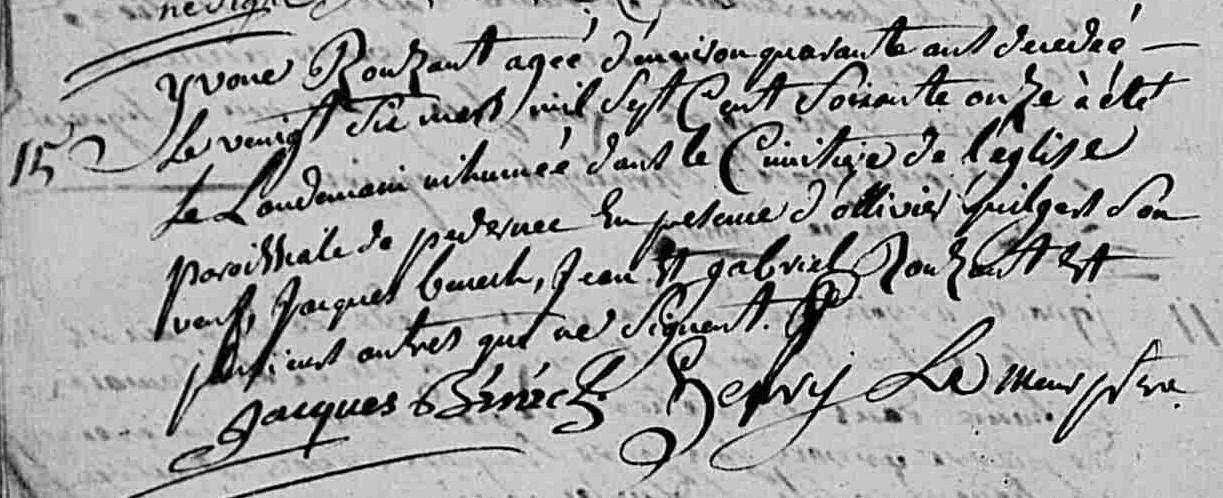 ne signe
yvone Rouzaut agéé d'environ quarante ans decedéé
15 Le vingt Six mars mil Sept Cent Soixante onze à été
Le Landemain inhuméé dans le Cimitiere de l'église
paroissiale de pedernec En presence d'ollivier quilgars Son
veuf, Jacques benech, Jean Et gabriel Rouzaut Et
plusieurs autres qui ne Signent.
Jacques Bénéch henry Le Meur ptre